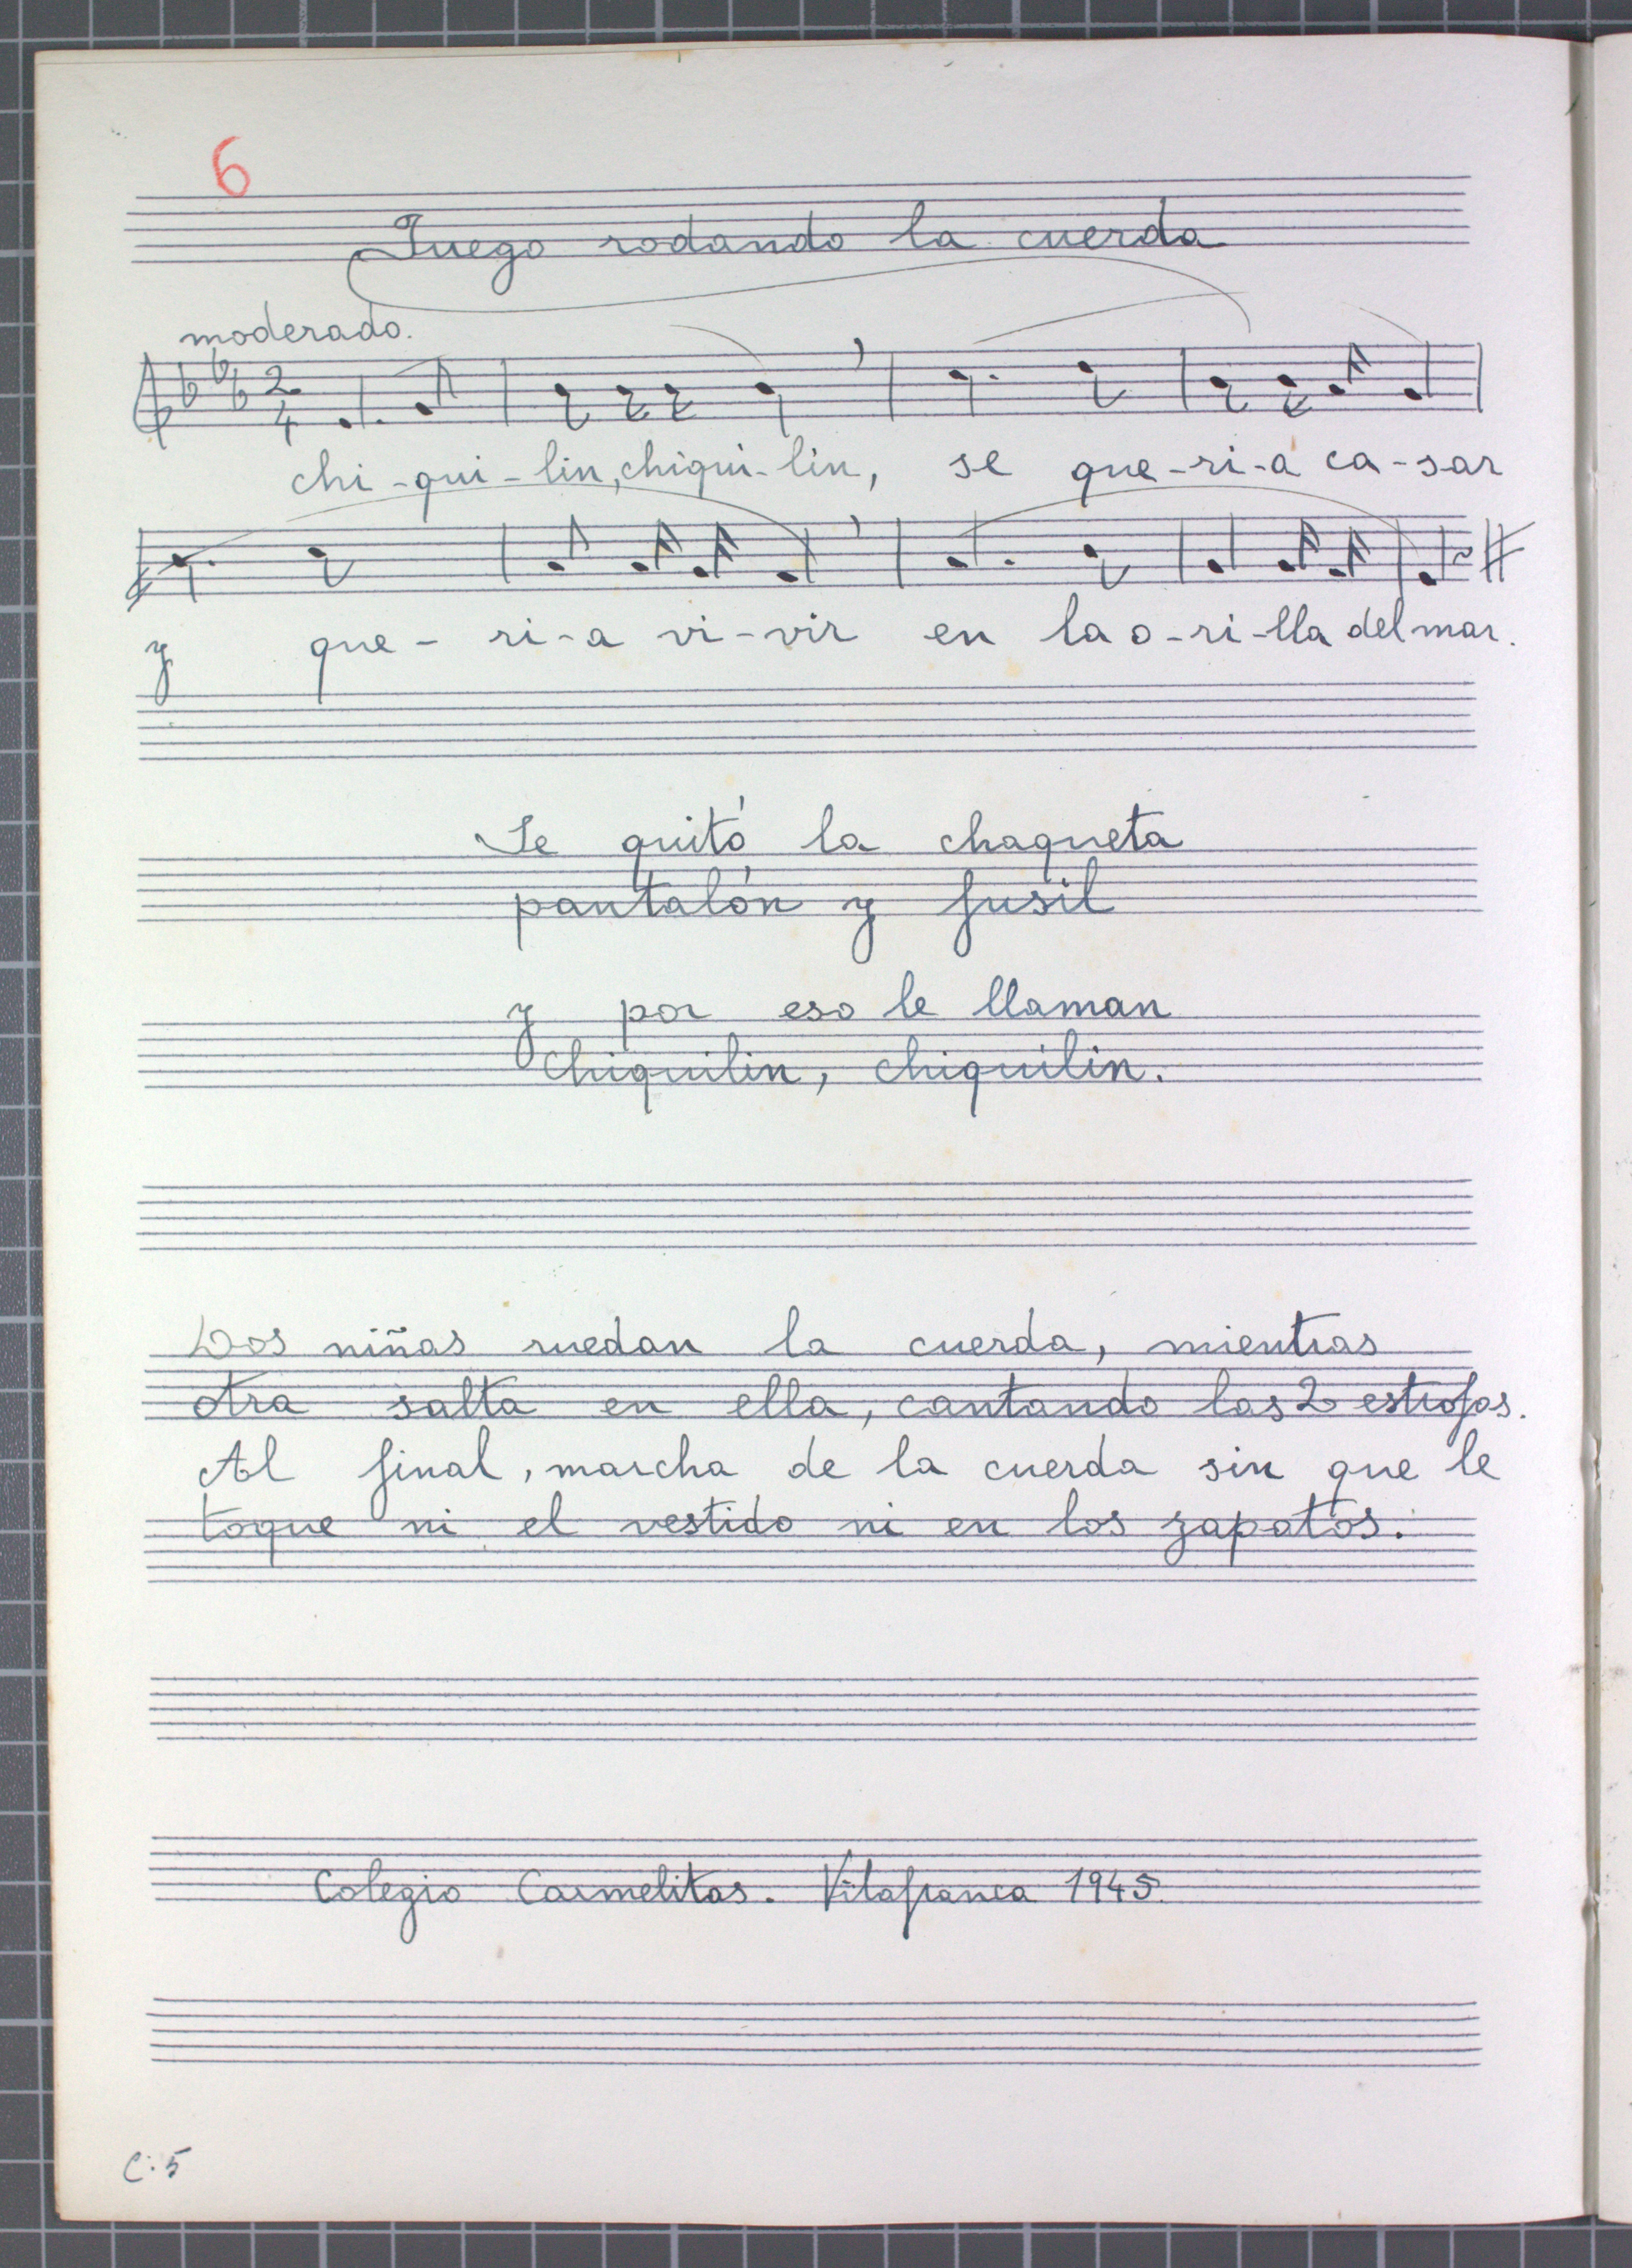 6
Juego rodando la cuerda
moderado.
2
4
chi-qui-lin, chiqui-lin, se que-ri-a ca-sar
y que-ri-a vi-vir en la o-ri-lla del mar.
Se quitó la chaqueta
pantalón y fusil
y por eso le llaman
Chiquilin, chiquilin.
Dos niñas ruedan la cuerda, mientras
otra salta en ella, cantando las 2 estrofas.
Al final, marcha de la cuerda sin que le
toque ni el vestido ni en los zapatos.
Colegio Carmelitas. Vilafranca 1945.
C: 5